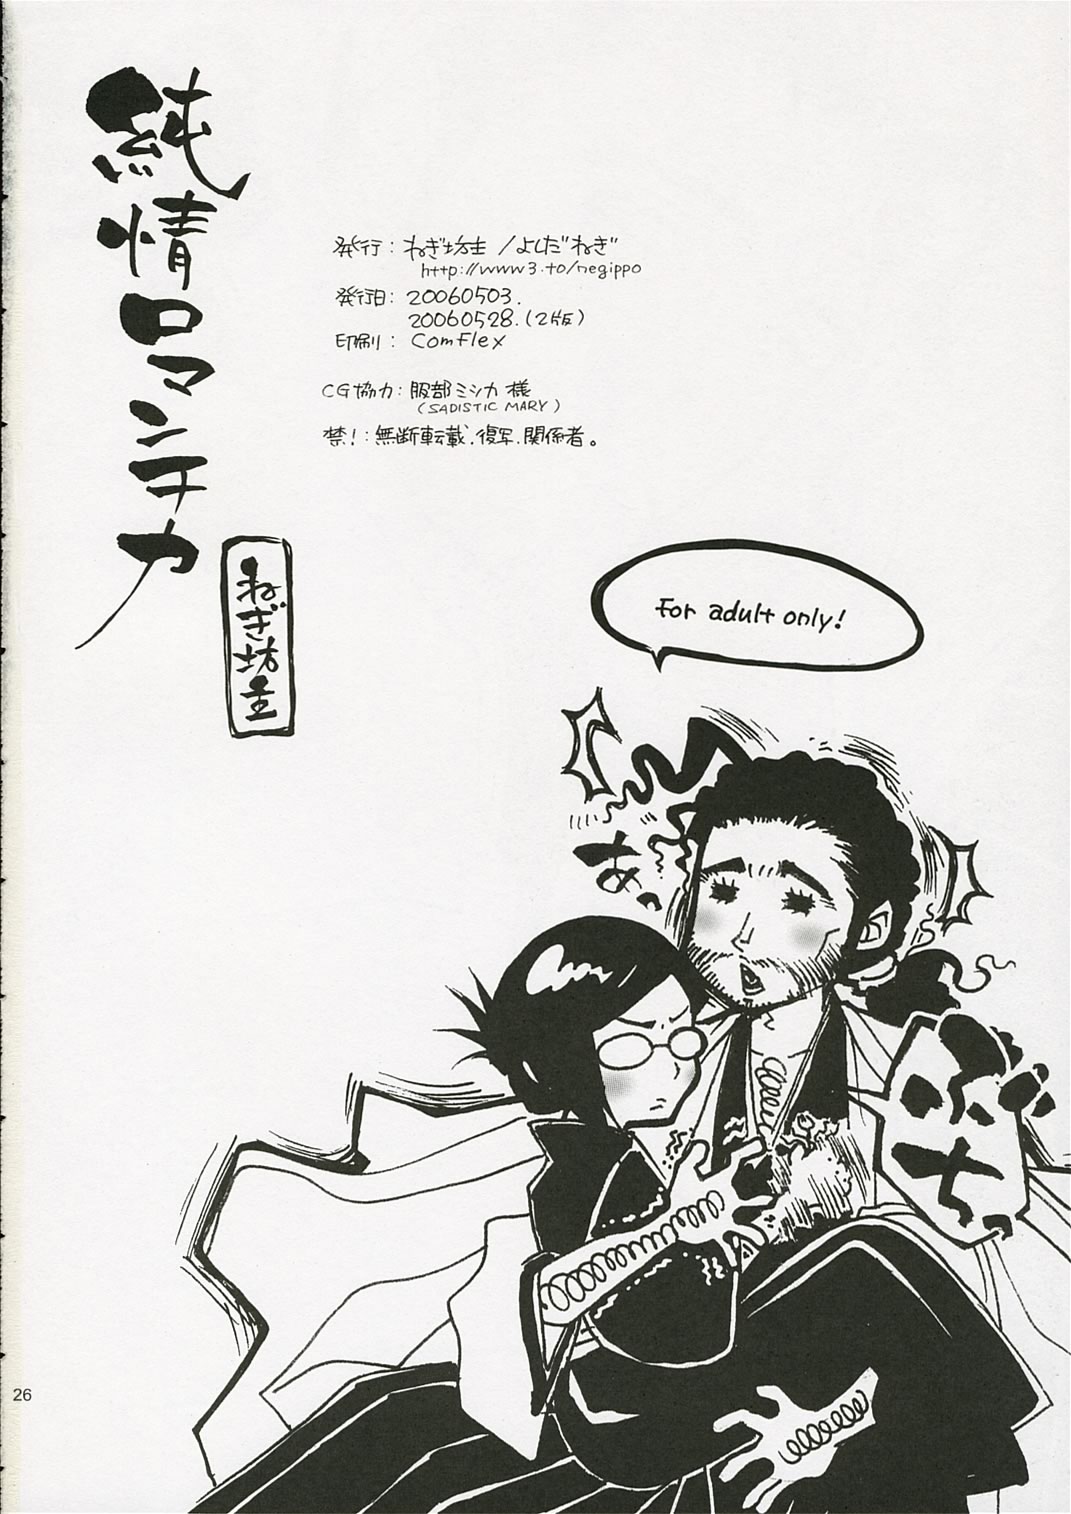 純情ロマンチカ
ねぎ坊主
発行：ねぎ坊主 /よしだ"ねぎ"
http://www3.to/negippo
発行日：20060503.
20060528.(2版)
印刷：ComFlex
CG協力：服部ミシカ様
(SADISTIC MARY)
禁！：無断転載.復写.関係者。
For adult only!
あっ
ぶち
26